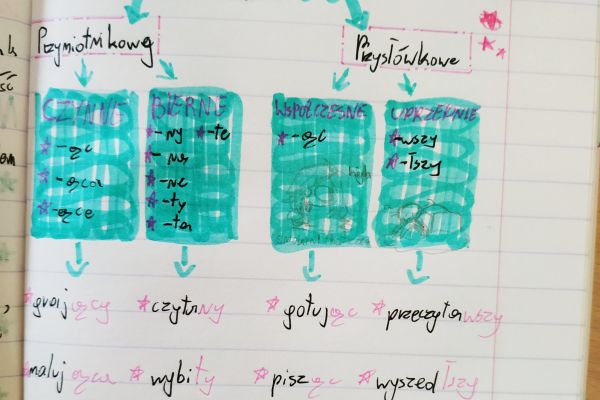 Przymiotnikowe Przysłówkowe
CZYNNE BIERNE WSPÓŁCZESNE UPRZEDNIE
-ąc -ny -te -ąc -wszy
-ąca -na -łszy
-ące -ne
-ty
-ta
grający czytany gotując przeczytawszy
malująca wybity pisząc wyszedłszy